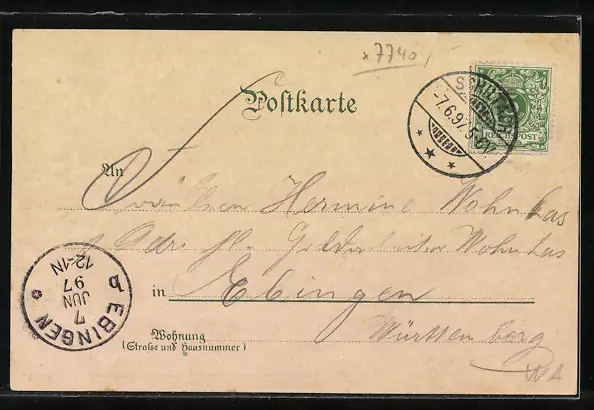 x 7740
Postkarte
7.6.97. 5-6N.
REICHSPOST
An
Fräulein Hermine Wohnhas
Adrs
Wohnhas
in Ebingen
Wohnung
(Straße und Hausnummer)
Württemberg
EBINGEN
b
7
JUN
97
12-1N